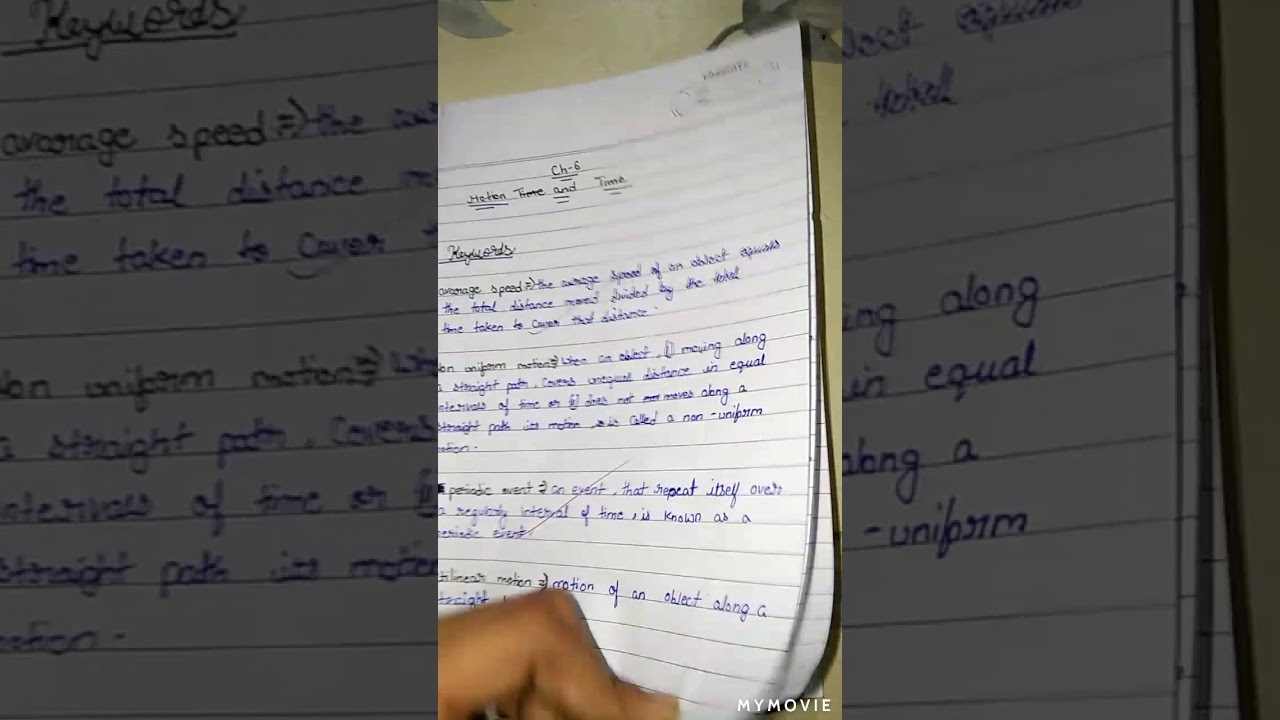 Ch-6
Motion Time and Time
Keywords
avarage speed => the avarage speed of an object equals
the total distance moved divided by the total
time taken to cover that distance.
on uniform motion => When an object, moving along
a straight path, Covers unequal distance in equal
ntervals of time or does not moves along a
straight path its motion is called a non-uniform
otion.
periodic event => an event, that repeat itself over
a regularly interval of time, is known as a
eriodic event.
tilinear motion => motion of an object along a
traight
MYMOVIE